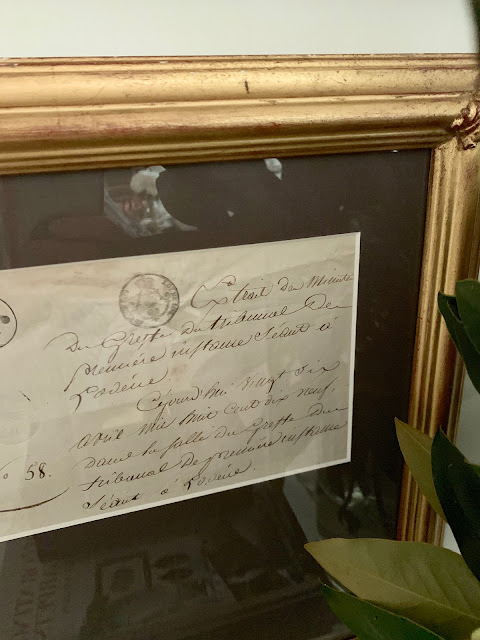 Extrait des Minutes
Du Greffe du tribunal De
première instance Séant à
Lodève
Cejourd'hui vingt six
avril mil huit cent dix neuf,
Dans la salle du Greffe du
tribunal De première instance
Séant à Lodève.
58.